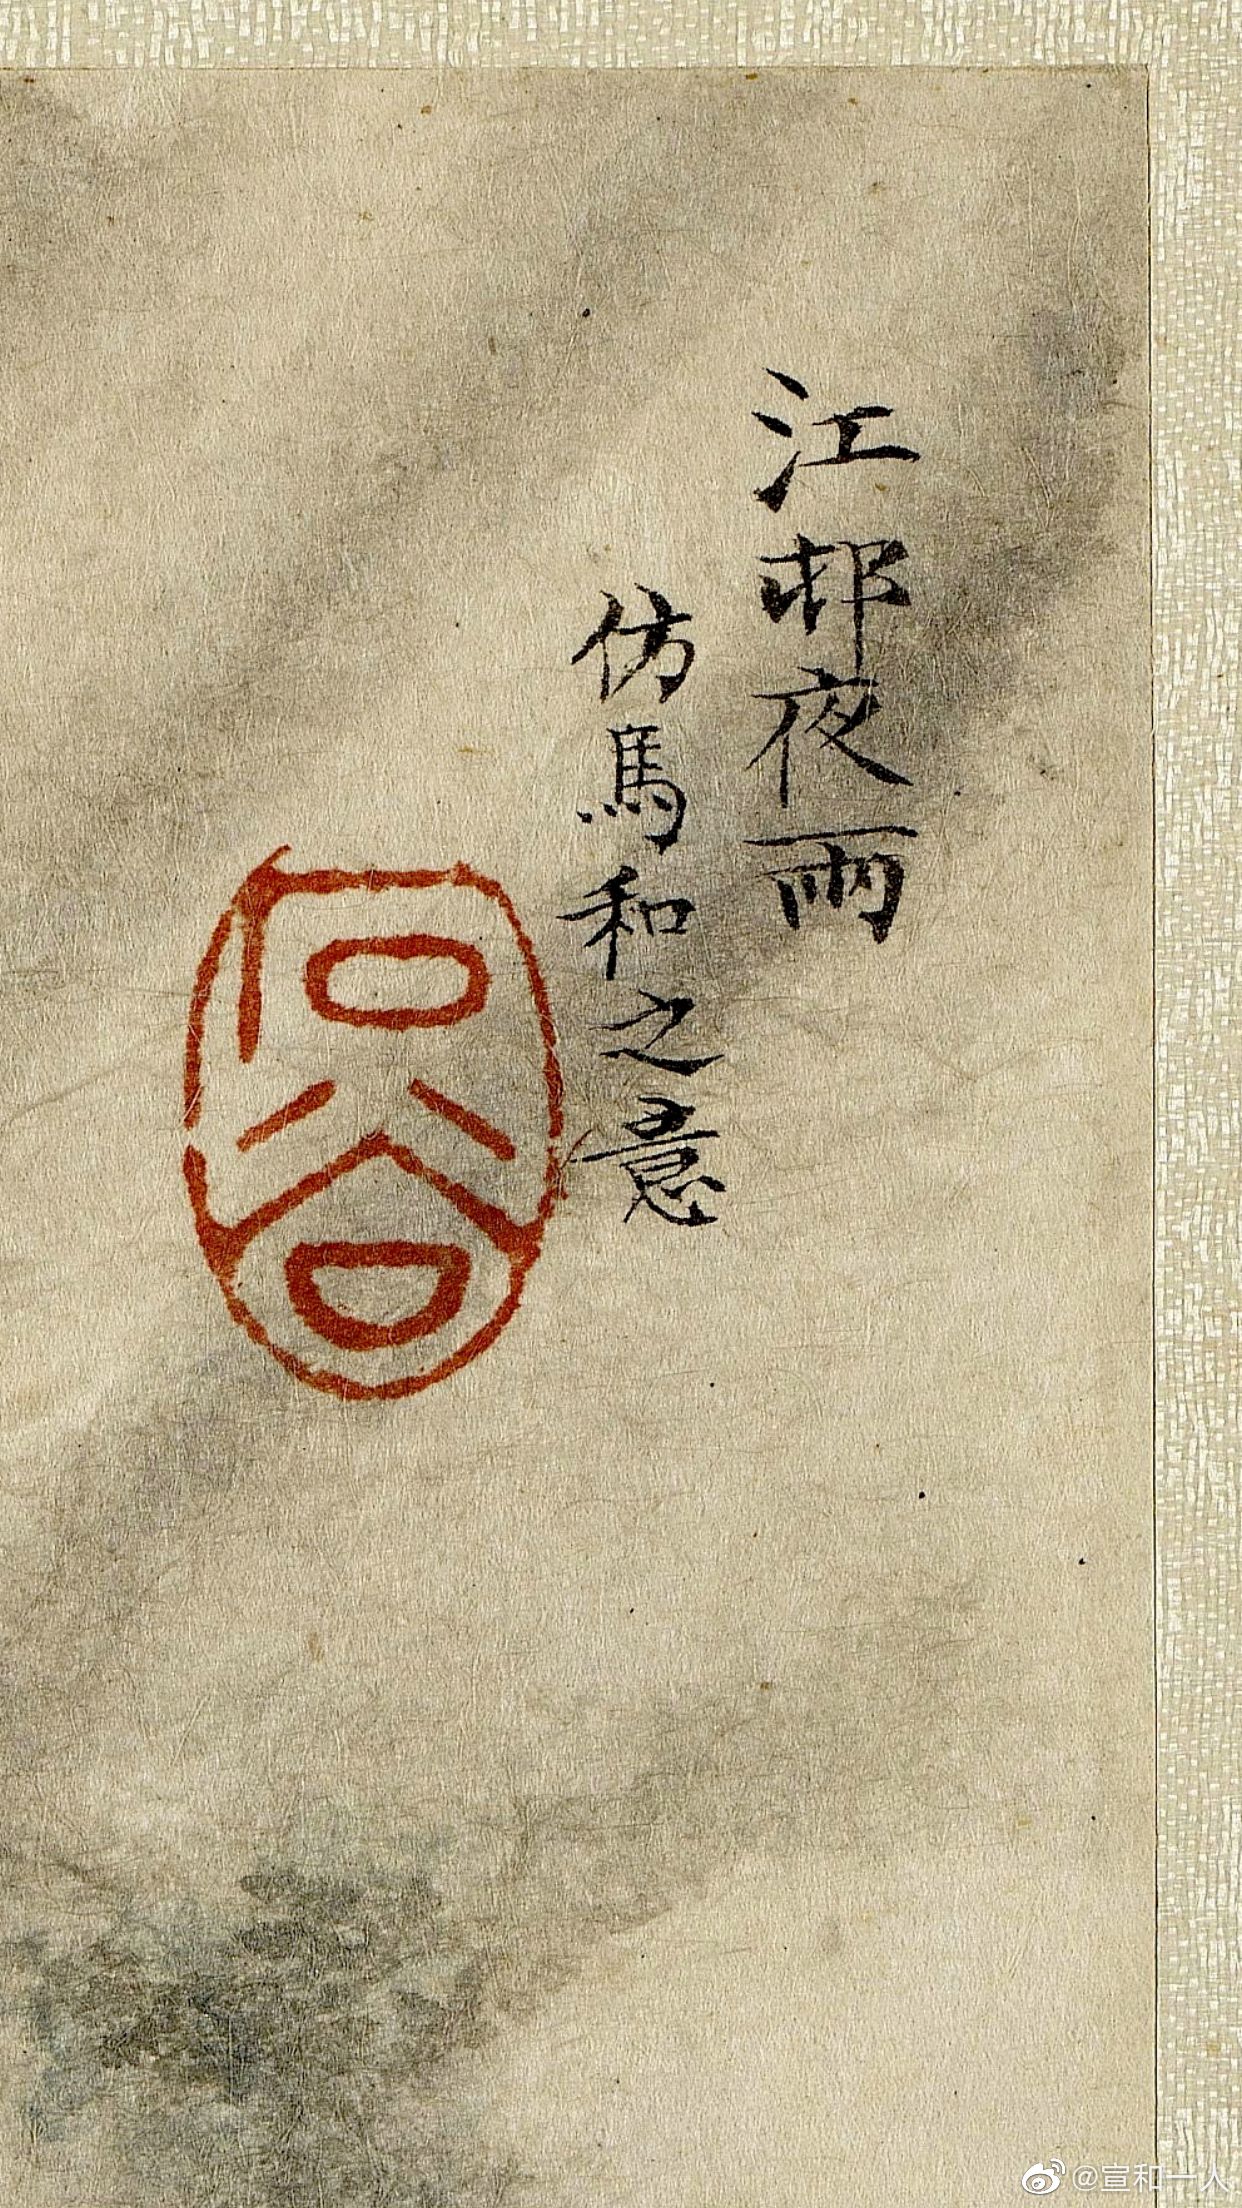 江邨夜雨
仿馬和之意
石谷
@宣和一人